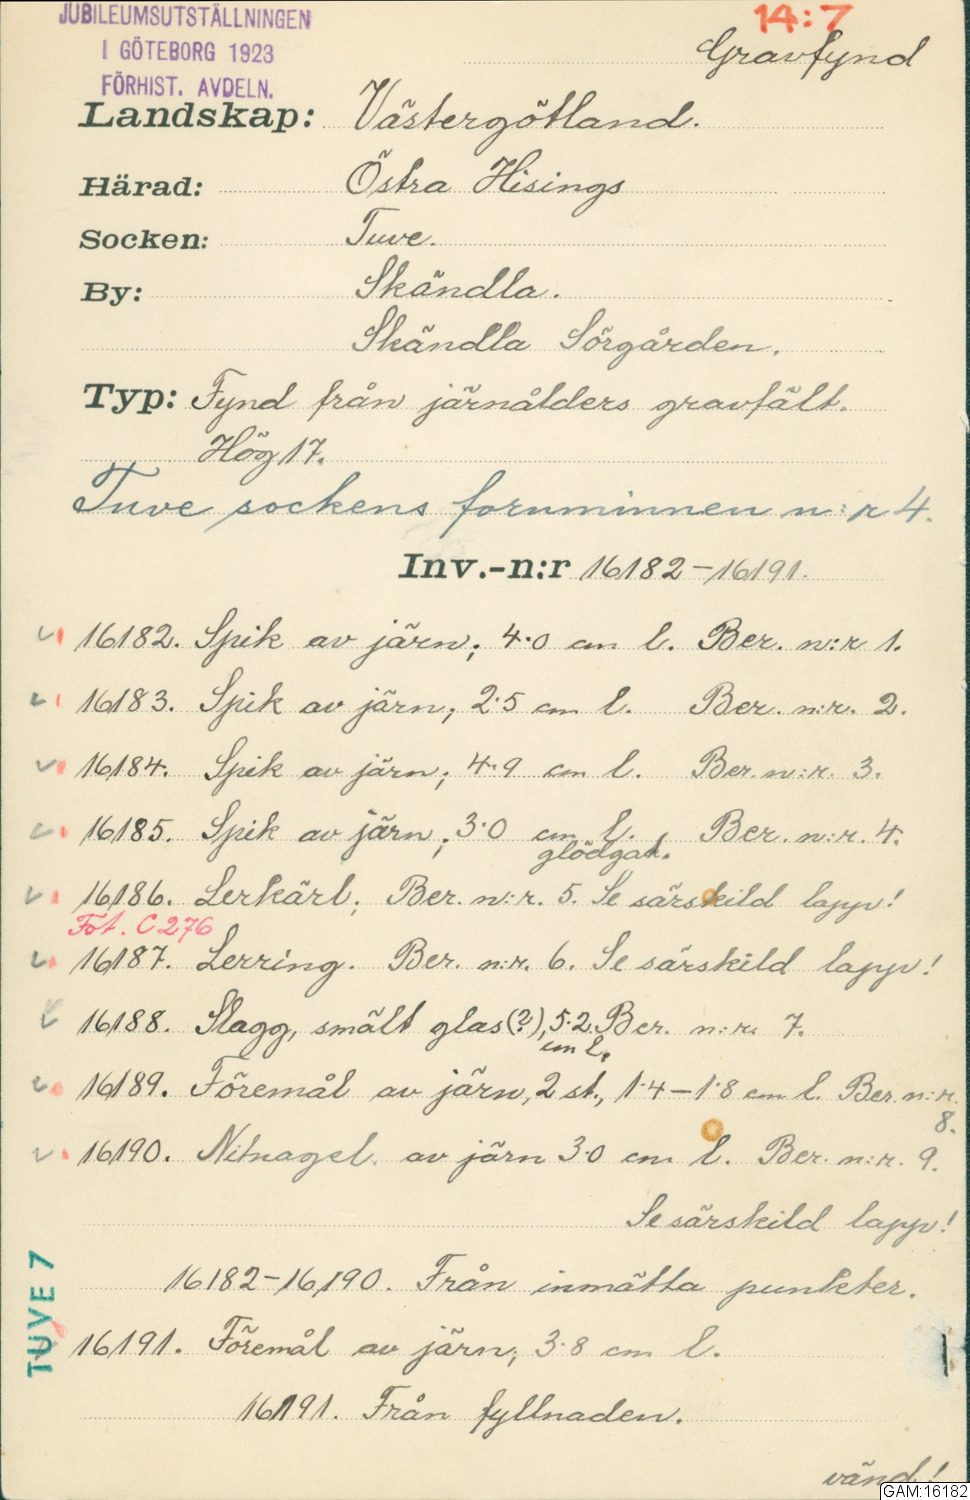 JUBILEUMSUTSTÄLLNINGEN
I GÖTEBORG 1923
FÖRHIST. AVDELN.
14:7
Gravfynd
Landskap: Västergötland.
Härad: Östra Hisings
Socken: Tuve.
By: Skändla.
Skändla Sörgården.
Typ: Fynd från järnålders gravfält.
Hög 17.
Tuve sockens fornminnen n:r 4.
Inv.-n:r 16182-16191.
16182. Spik av järn; 4.0 cm l. Ber. n:r 1.
16183. Spik av järn; 2.5 cm l. Ber. n:r. 2.
16184. Spik av järn; 4.9 cm l. Ber. n:r. 3.
16185. Spik av järn; 3.0 cm l. Ber. n:r. 4.
glödgat.
16186. Lerkärl; Ber. n:r. 5. Se särskild lapp!
Fot. C 276
16187. Lerring. Ber. n:r. 6. Se särskild lapp!
16188. Slagg, smält glas(?), 5.2 Ber. n:r. 7.
cm l.
16189. Föremål av järn, 2 st., 1.4-1.8 cm l. Ber. n:r.
8.
16190. Nitnagel av järn 3.0 cm l. Ber. n:r. 9.
Se särskild lapp!
16182-16190. Från inmätta punkter.
16191. Föremål av järn; 3.8 cm l.
16191. Från fyllnaden.
vänd!
TUVE 7
GAM:16182